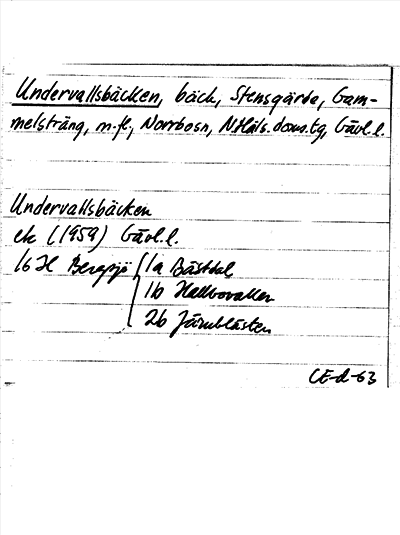 Undervallsbäcken, bäck, Stensgärde, Gam-
melsträng, m.fl., Norrbosn, N.Häls.doms.tg, Gävl.l.
Undervallsbäcken
ek (1959) Gävl.l.
16 H Bergsjö 1a Bästdal
1b Hallbovallen
2b Järnblästen
CE-d-63